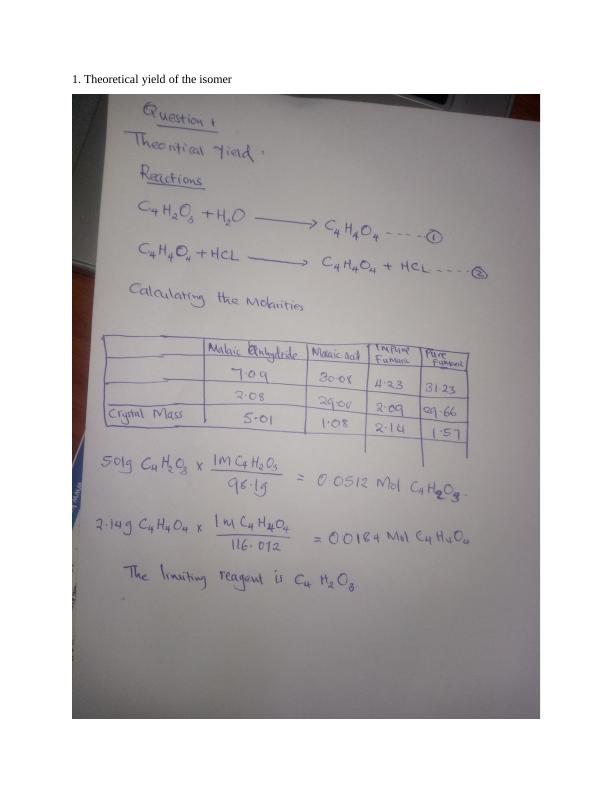 1. Theoretical yield of the isomer
Question 1
Theoritical Yield.
Reactions
C4H2O3 + H2O → C4H4O4 ---- ①
C4H4O4 + HCL → C4H4O4 + HCL ---- ②
Calculating the Molarities
Malaic Anhydride Malaic acid Impure Fumaric Pure Fumaric
7.09 30.08 4.23 31.23
2.08 29.00 2.09 29.66
Crystal Mass 5.01 1.08 2.14 1.57
501g C4H2O3 × 1M C4H2O3 / 98.1g = 0.0512 Mol C4H2O3.
2.14g C4H4O4 × 1M C4H4O4 / 116.072 = 0.0184 Mol C4H4O4
The limiting reagent is C4H2O3